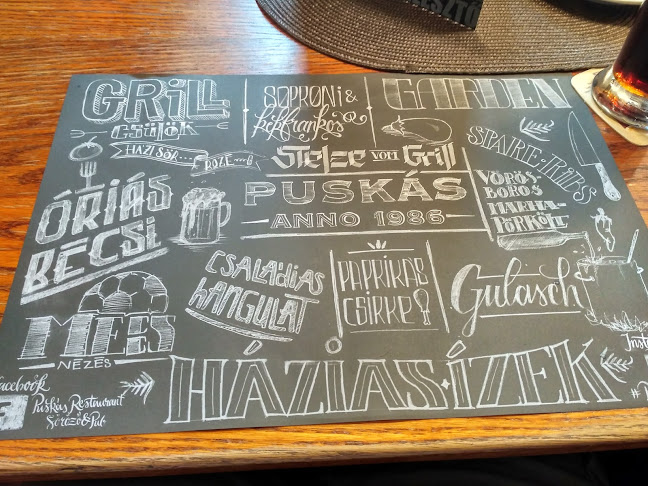 GRILL
CSÜLÖK
SOPRONI &
kékfrankos
GARDEN
HAZI SÖR
ROZÉ
Stelze von Grill
SPARE-RIBS
PUSKÁS
ANNO 1986
VÖRÖS-
BOROS
MARHA-
PÖRKÖLT
ÓRIÁS
BÉCSI
CSALÁDIAS
HANGULAT
PAPRIKÁS
CSIRKE
Gulasch
MECCS
NÉZÉS
HÁZIAS ÍZEK
facebook
Puskás Restaurant
Söröző & Pub
Inst